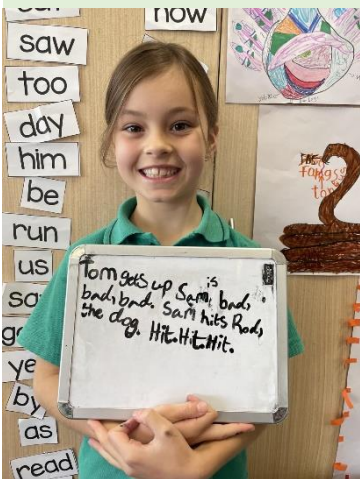 now
saw
too
day
him
be
run
us
as
read
Tom gets up is
Sam, bad,
bad, bad. Sam hits Rod,
the dog. Hit. Hit. Hit.